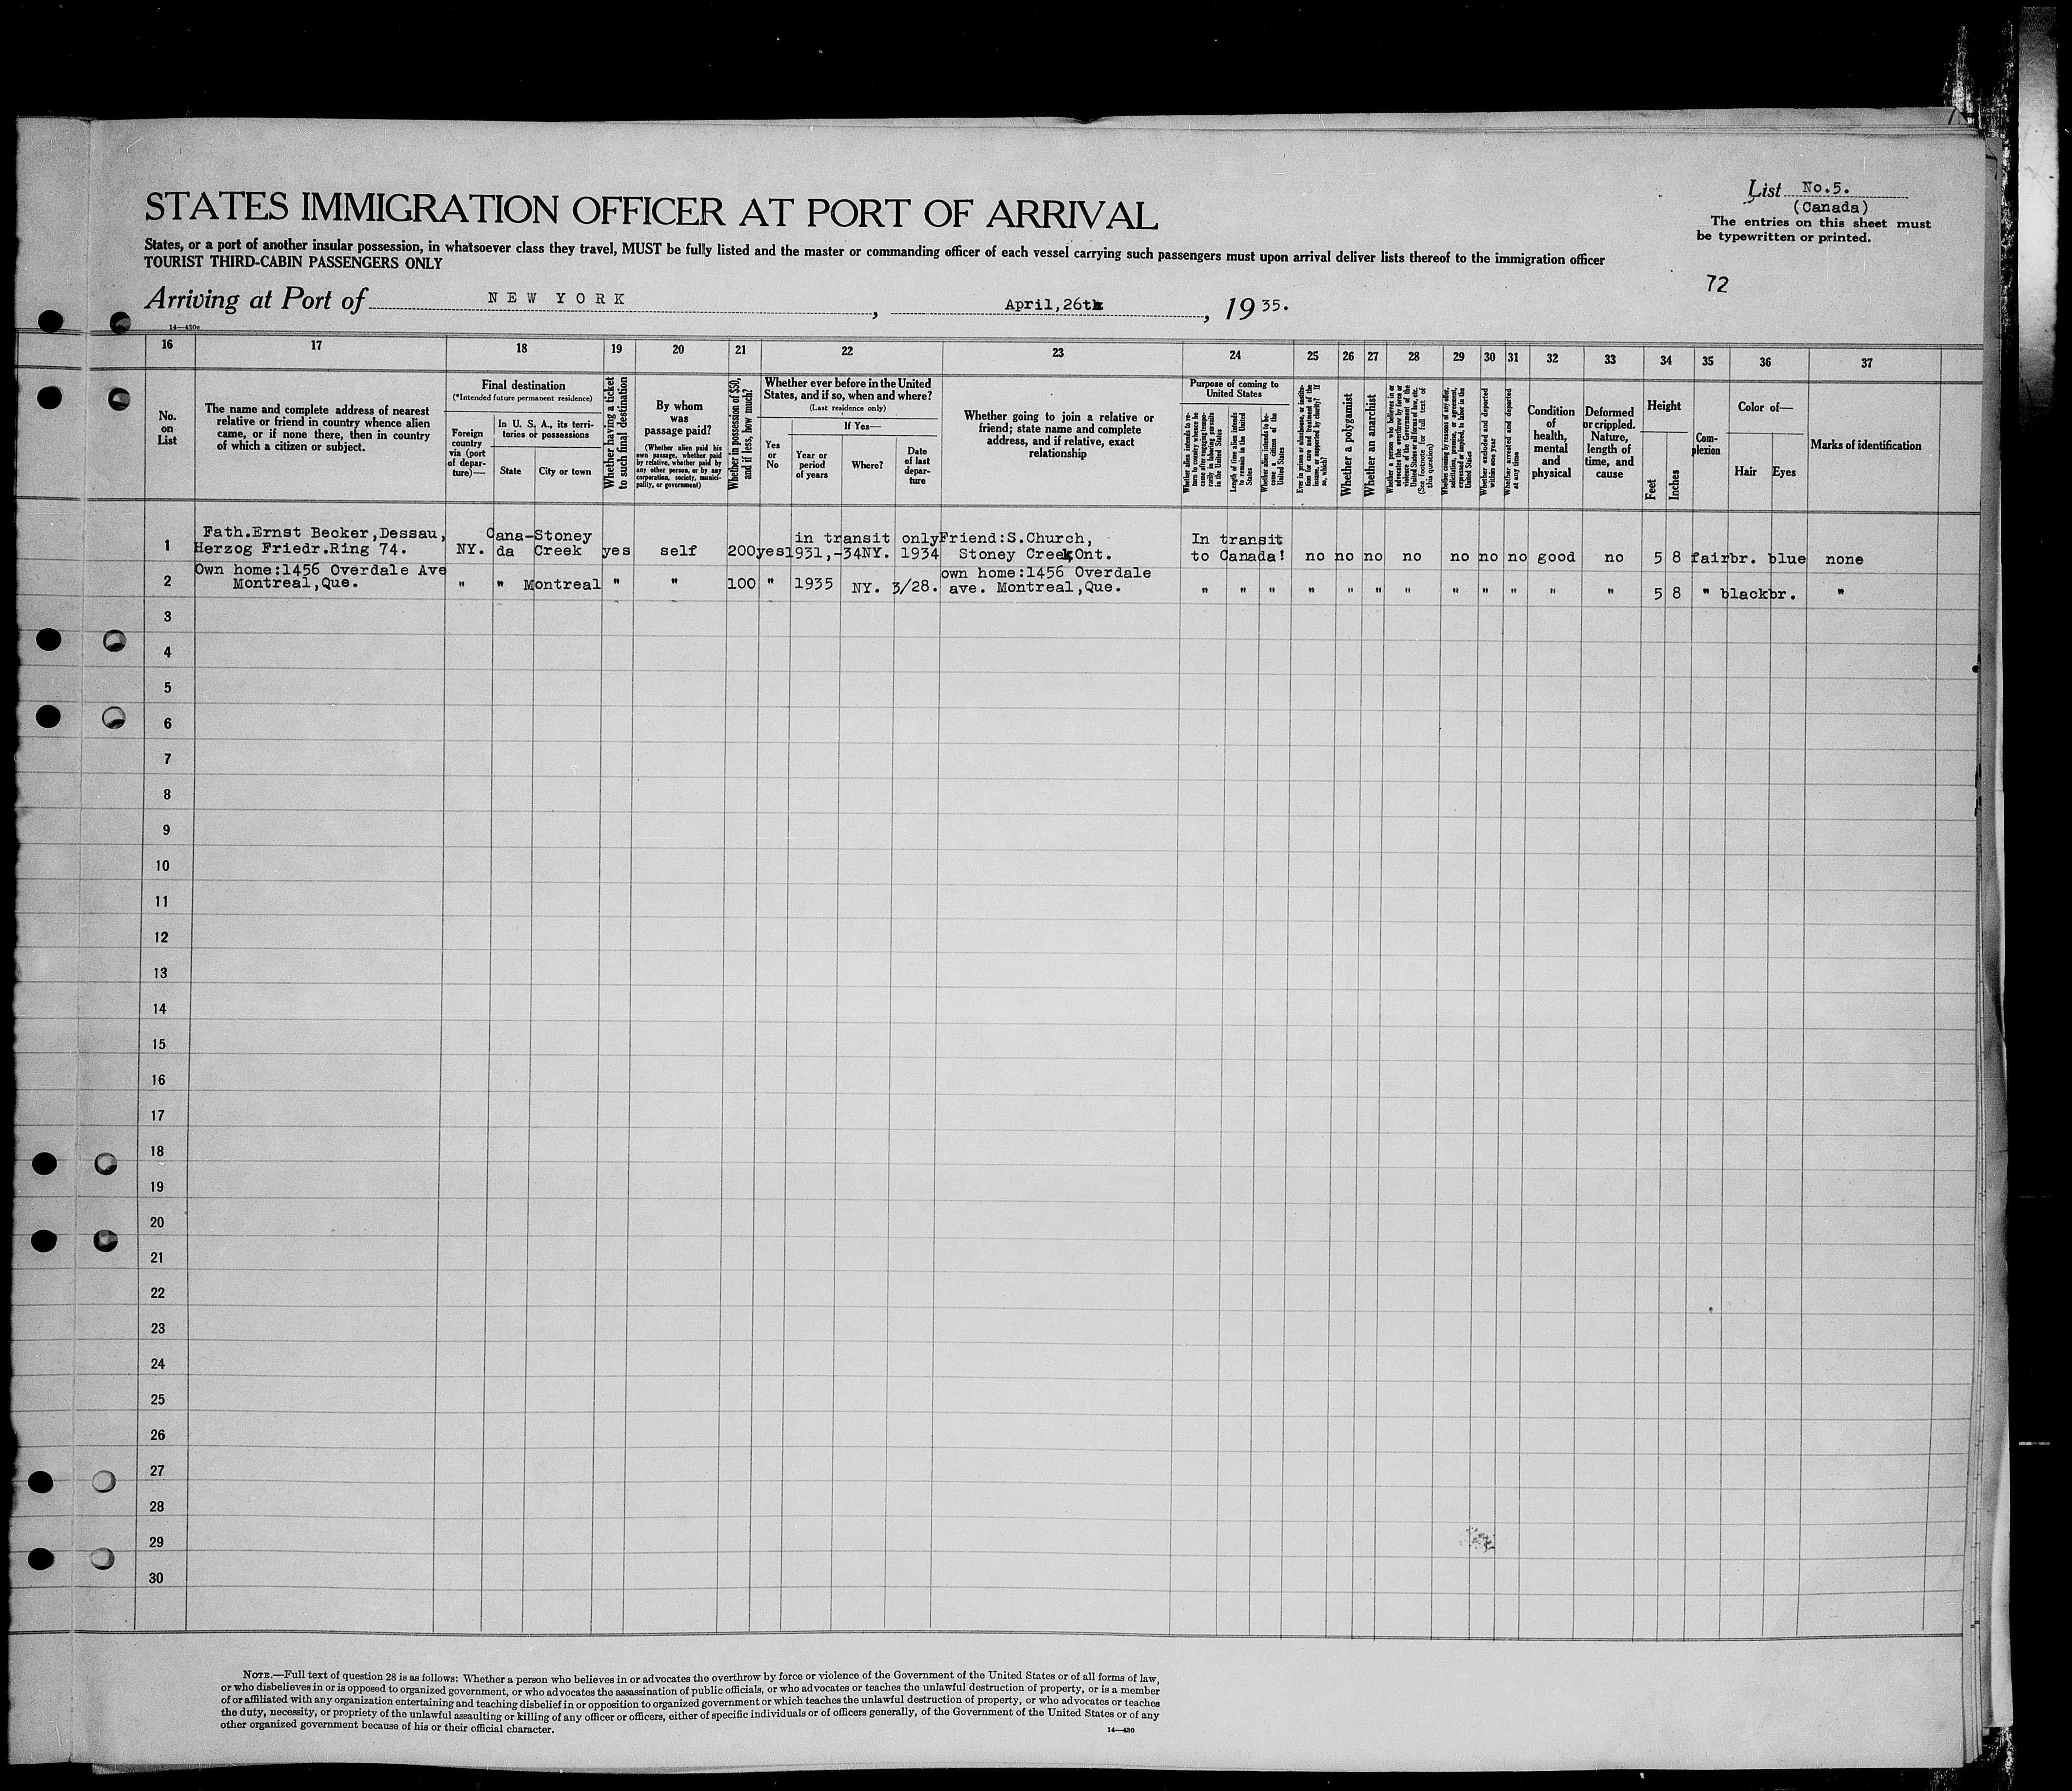 List No.5.
(Canada)
The entries on this sheet must
be typewritten or printed.
STATES IMMIGRATION OFFICER AT PORT OF ARRIVAL
States, or a port of another insular possession, in whatsoever class they travel, MUST be fully listed and the master or commanding officer of each vessel carrying such passengers must upon arrival deliver lists thereof to the immigration officer
TOURIST THIRD-CABIN PASSENGERS ONLY
72
Arriving at Port of NEW YORK, April,26th, 1935.
14—430c
16 17 18 19 20 21 22 23 24 25 26 27 28 29 30 31 32 33 34 35 36 37
No.
on
List
The name and complete address of nearest
relative or friend in country whence alien
came, or if none there, then in country
of which a citizen or subject.
Final destination
(*Intended future permanent residence)
Foreign
country
via (port
of depar-
ture)—
In U. S. A., its terri-
tories or possessions
State City or town
Whether having a ticket
to such final destination
By whom
was
passage paid?
(Whether alien paid his
own passage, whether paid
by relative, whether paid by
any other person, or by any
corporation, society, munici-
pality, or government)
Whether in possession of $50,
and if less, how much?
Whether ever before in the United
States, and if so, when and where?
(Last residence only)
Yes
or
No
If Yes—
Year or
period
of years
Where?
Date
of last
depar-
ture
Whether going to join a relative or
friend; state name and complete
address, and if relative, exact
relationship
Purpose of coming to
United States
Whether alien intends to re-
turn to country whence he
came after engaging tempo-
rarily in laboring pursuits
in the United States
Length of time alien intends
to remain in the United
States
Whether alien intends to be-
come a citizen of the
United States
Ever in prison or almshouse, or institu-
tion for care and treatment of the
insane, or supported by charity? If
so, which?
Whether a polygamist
Whether an anarchist
Whether a person who believes in or
advocates the overthrow by force or
violence of the Government of the
United States or all forms of law, etc.
(See footnote for full text of
this question)
Whether coming by reason of any offer,
solicitation, promise, or agreement,
expressed or implied, to labor in the
United States
Whether excluded and deported
within one year
Whether arrested and deported
at any time
Condition
of
health,
mental
and
physical
Deformed
or crippled.
Nature,
length of
time, and
cause
Height
Feet
Inches
Com-
plexion
Color of—
Hair Eyes
Marks of identification
1 Fath.Ernst Becker,Dessau, Cana- Stoney in transit only Friend:S.Church, In transit
Herzog Friedr.Ring 74. NY. da Creek yes self 200 yes 1931,-34 NY. 1934 Stoney Creek,Ont. to Canada! no no no no no no no good no 5 8 fair br. blue none
2 Own home:1456 Overdale Ave own home:1456 Overdale
Montreal,Que. " " Montreal " " 100 " 1935 NY. 3/28. ave. Montreal,Que. " " " " " " " " " " " " 5 8 " black br. "
3
4
5
6
7
8
9
10
11
12
13
14
15
16
17
18
19
20
21
22
23
24
25
26
27
28
29
30
NOTE.—Full text of question 28 is as follows: Whether a person who believes in or advocates the overthrow by force or violence of the Government of the United States or of all forms of law,
or who disbelieves in or is opposed to organized government, or who advocates the assassination of public officials, or who advocates or teaches the unlawful destruction of property, or is a member
of or affiliated with any organization entertaining and teaching disbelief in or opposition to organized government or which teaches the unlawful destruction of property, or who advocates or teaches
the duty, necessity, or propriety of the unlawful assaulting or killing of any officer or officers, either of specific individuals or of officers generally, of the Government of the United States or of any
other organized government because of his or their official character.
14—430